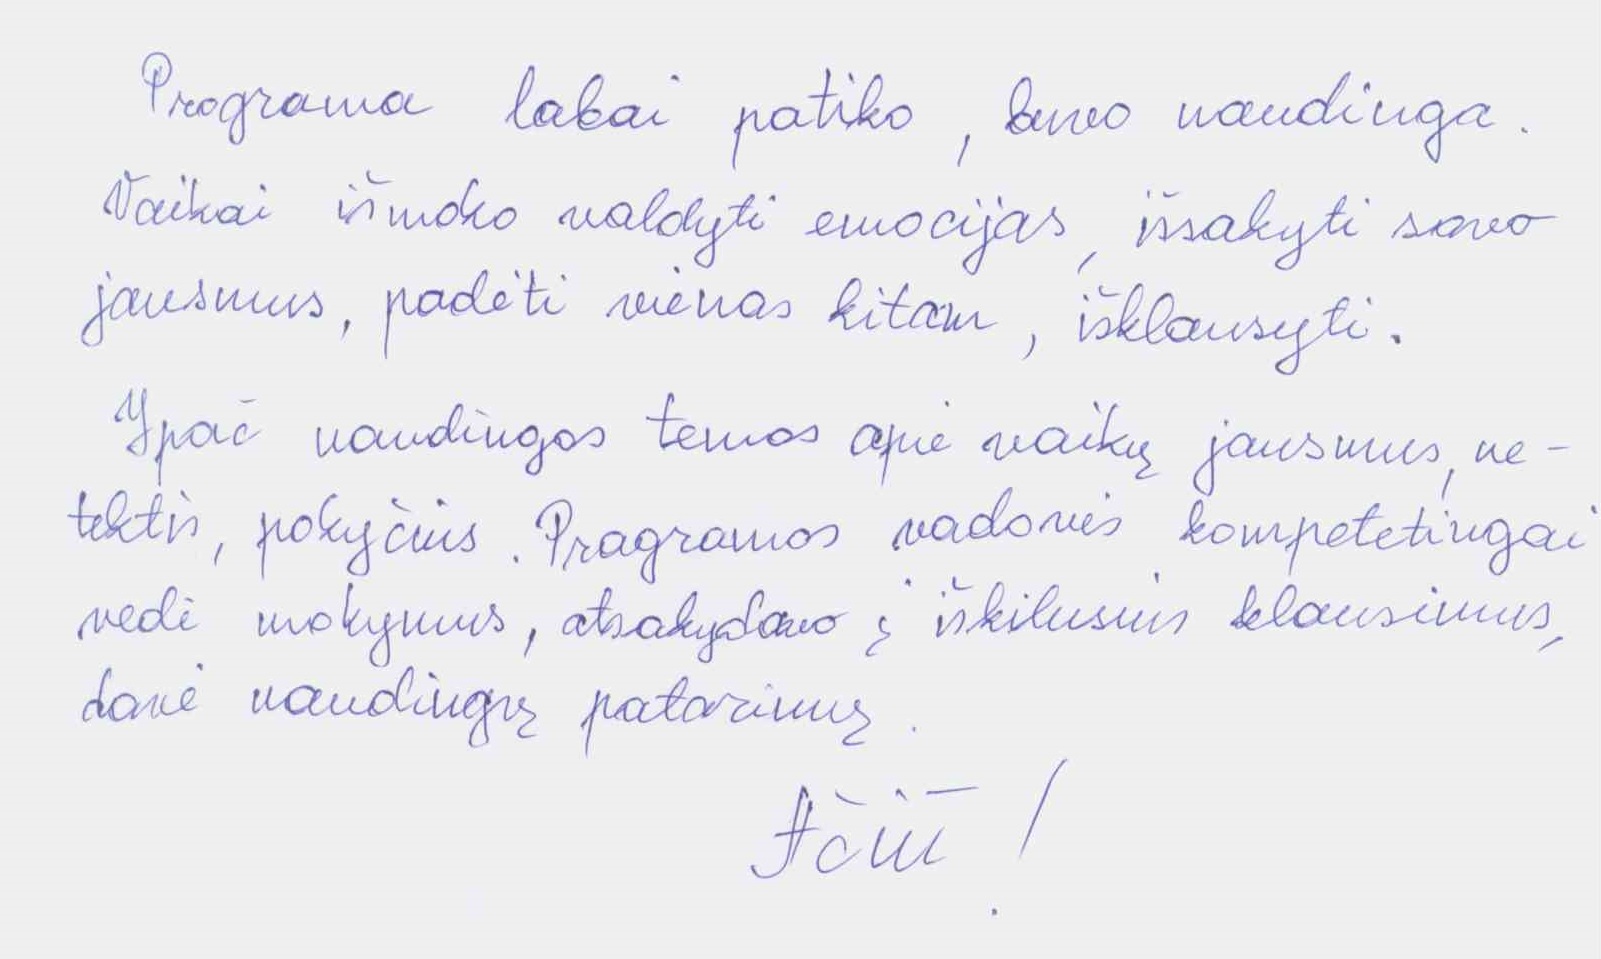 Programa labai patiko, buvo naudinga.
Vaikai išmoko valdyti emocijas, išsakyti savo
jausmus, padėti vienas kitam, išklausyti.
Ypač naudingos temos apie vaikų jausmus, ne-
tektis, pokyčius. Pragramos vadovės kompetetingai
vedė mokymus, atsakydavo į iškilusius klausimus,
davė naudingų patarimų.
Ačiū!